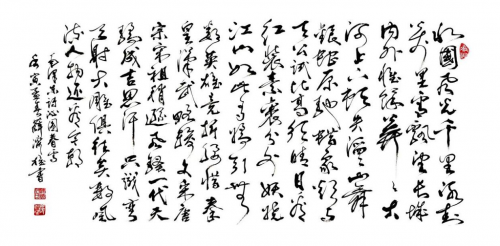 北國風光千里冰封
萬里雪飄望長城
内外惟餘莽莽大
河上下頓失滔滔山舞
銀蛇原馳蠟象欲與
天公試比高須晴日看
紅裝素裹分外妖嬈
江山如此多嬌引無
數英雄競折腰惜秦
皇漢武略輸文采唐
宗宋祖稍遜風騷一代天
驕成吉思汗只識彎
弓射大雕俱往矣數風
流人物還看今朝
毛澤東詩沁園春雪
壬寅書